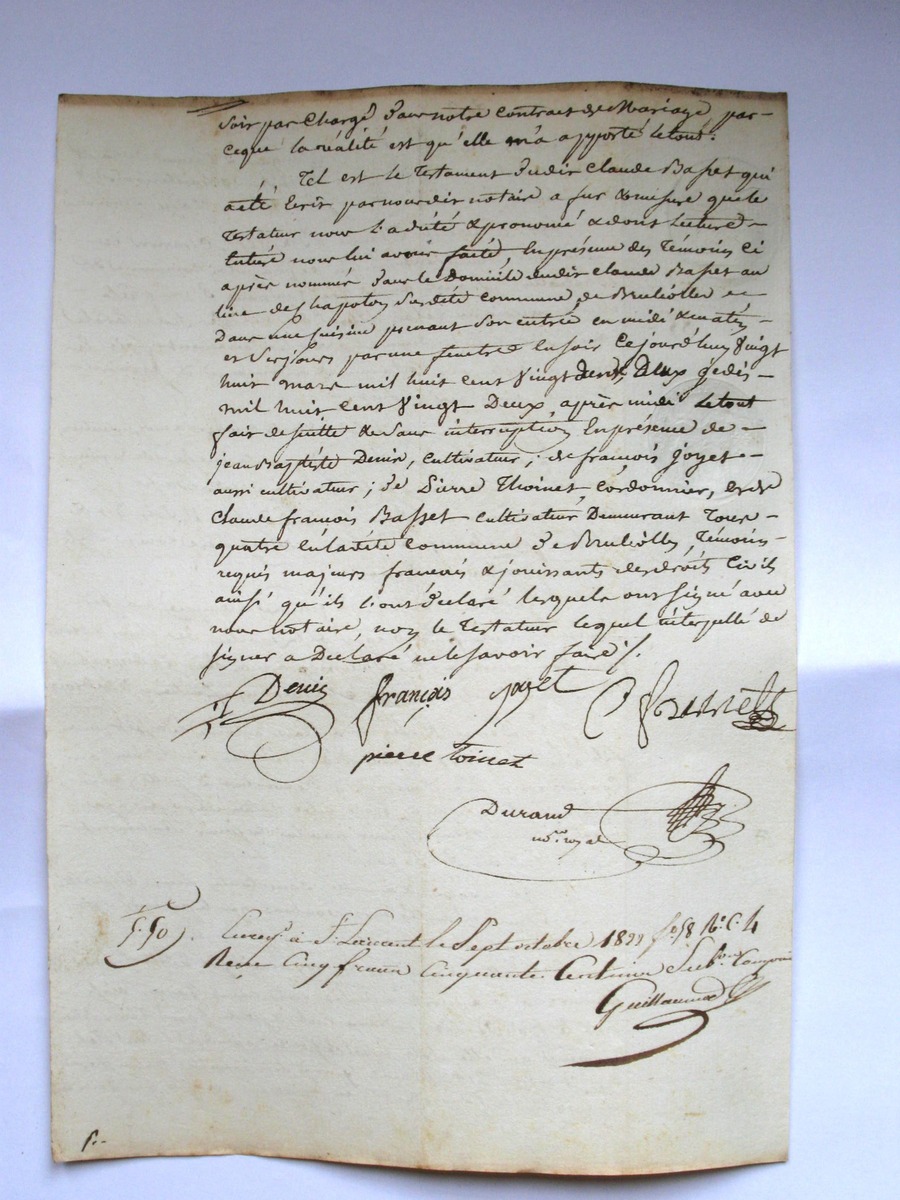 soit par Chargé dans notre Contract de Mariage, par-
ceque la réalité est qu'elle m'a apporté le tout.
Tel est le Testament dudit Claude Basset qui
a été Ecrit par nous dit notaire a fur & mesure que le
Testateur nous l'a dicté & prononcé & dont Lecture
nous lui avons faité, En présence des Témoins Ci
après nommés dans le Domicile dudit Claude Basset au
lieu de Chapoton Susdité commune, de Bruliolles et
Dans une cuisine prenant son entrée en midi & matin
et Ses jours par une fenêtre en soir Ce jourd'huy Vingt
huit mars mil huit cent Vingt Deux Je dis
mil huit cent Vingt Deux, après midi Le tout
fait de suitte & sans interruption En présence de
jean Baptiste Denis, Cultivateur ; de françois Joyet
aussi cultivateur ; de Pierre Thoinet, Cordonnier, et de
Claude françois Basset Cultivateur Demeurant Tous
quatre En la dité Commune de Brulliolles, Témoins
requis majeurs francois & jouissants des droits Civils
ainsi qu'ils l'ont déclaré lesquels ont signé avec
nous notaire, non le Testateur lequel interpellé de
signer a Declaré ne le savoir faire ./.
Denis françois joyet C f Bassett
pierre toinet
Durand
no.re royal
5f 50
Enreg.é à St Laurent le Sept octobre 1822 f.o 58 R.o C. 4
Reçu Cinq francs Cinquante Centimes Sub.on Comprise
Guillaumot